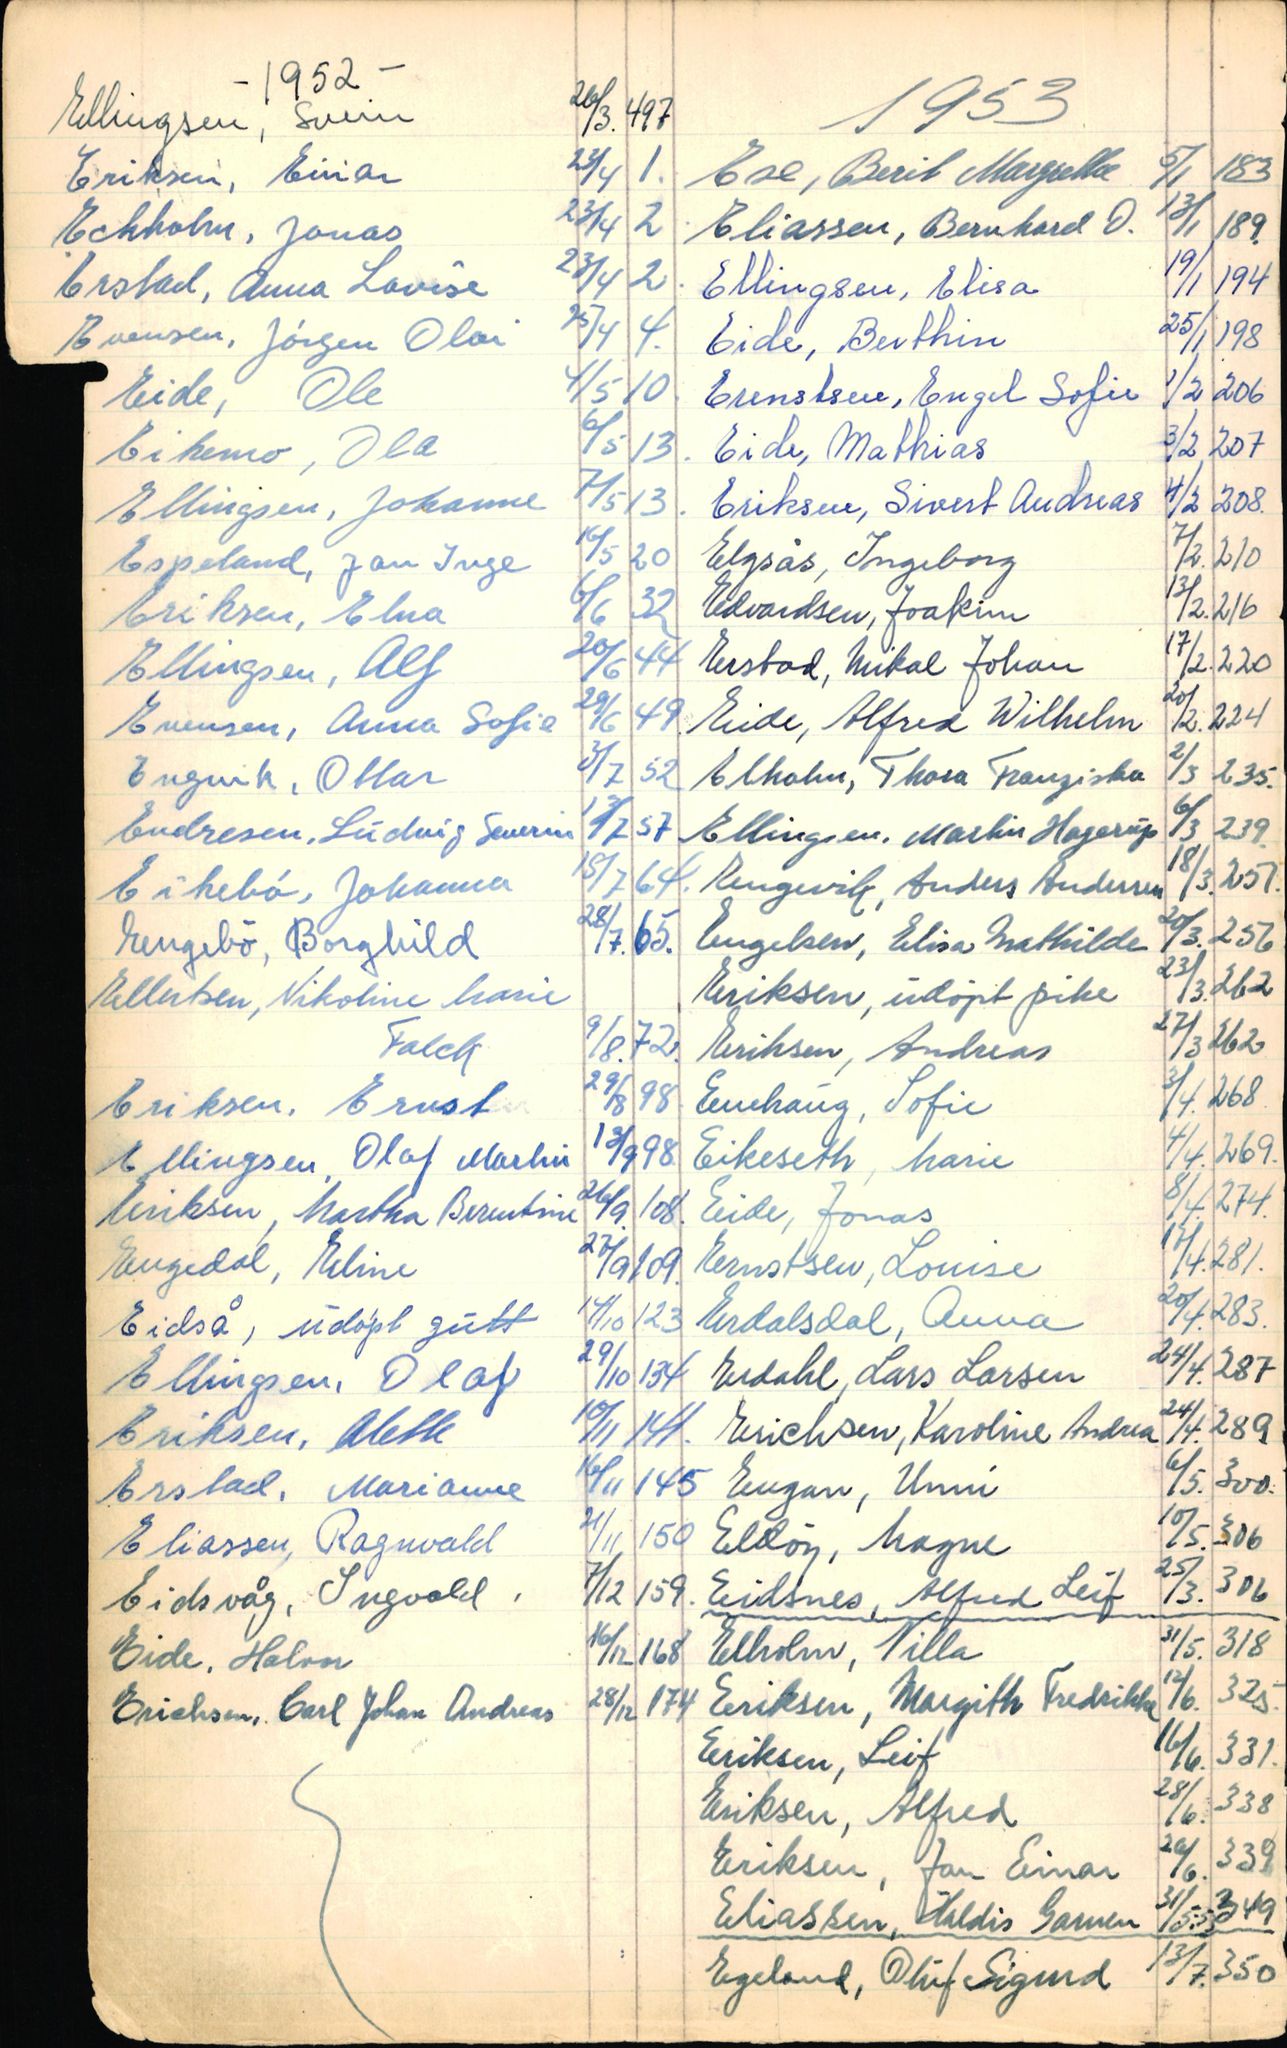 - 1952 -
Ellingsen, Svein 26/3. 497
Eriksen, Einar 23/4 1.
Eckholm, Jonas 23/4 2
Erstad, Anna Lovise 23/4 2.
Evensen, Jörgen Olai 25/4 4.
Eide, Ole 4/5 10.
Eikemo, Ola 6/5 13.
Ellingsen, Johanne 7/5 13.
Espeland, Jan Inge 16/5 20
Eriksen, Elna 6/6 32
Ellingsen, Alf 20/6 44
Evensen, Anna Sofie 29/6 49.
Engvik, Ottar 3/7 52
Endresen, Ludvig Severin 57
Eikebó, Johanna 15/7 64.
Engebö, Borghild 28/7. 65.
Ellertsen, Nikoline Marie
Falck 9/8. 72.
Eriksen, Ernst 29/8 98
Ellingsen, Olaf Martin 13/9 98
Eriksen, Martha Berentine 26/9. 108.
Engedal, Eline 27/9 109.
Eidså, udöpt gutt 14/10 123
Ellingsen, Olaf 29/10 134
Eriksen, Alette 10/11 141.
Erstad, Marianne 16/11 145
Eliassen, Ragnvald 21/11 150
Eidsvåg, Ingvald. 7/12 159.
Eide, Halvor 16/12 168
Erichsen, Carl Johan Andreas 28/12 174
1953
Ese, Berit Margrethe 5/1 183
Eliassen, Bernhard O. 13/1 189.
Ellingsen, Elisa 19/1 194
Eide, Berthin 25/1 198
Erenstsen, Engel Sofie 1/2 206
Eide, Mathias 3/2 207
Eriksen, Sivert Andreas 4/2 208.
Elgsås, Ingeborg 7/2. 210
Edvardsen, Joakim 13/2. 216
Erstad, Mikal Johan 17/2. 220
Eide, Alfred Wilhelm 20/2. 224
Elholm, Thora Franziska 2/3 235.
Ellingsen, Martin Hagerup 6/3 239.
Engevik, Anders Andersen 18/3. 251.
Engelsen, Elisa Mathilde 20/3. 256
Eriksen, udöpt pike 23/3. 262
Eriksen, Andreas 27/3 262
Enehaug, Sofie 3/4. 268
Eikeseth, Marie 4/4. 269.
Eide, Jonas 8/4. 274.
Ernstsen, Louise 17/4. 281.
Erdalsdal, Anna 20/4. 283.
Erdahl, Lars Larsen 24/4. 287
Erichsen, Karoline Andrea 24/4. 289
Engan, Unni 6/5. 300.
Eldöy, Magne 10/5. 306
Eidsnes, Alfred Leif 25/3. 306
Elholm, Villa 31/5. 318
Eriksen, Margith Fredrikke 12/6. 325.
Eriksen, Leif 16/6. 331.
Eriksen, Alfred 28/6. 338
Eriksen, Jan Einar 26/6. 339
Eliassen, Haldis Garmen 31/5.53 349
Egeland, Oluf Sigurd 13/7. 350